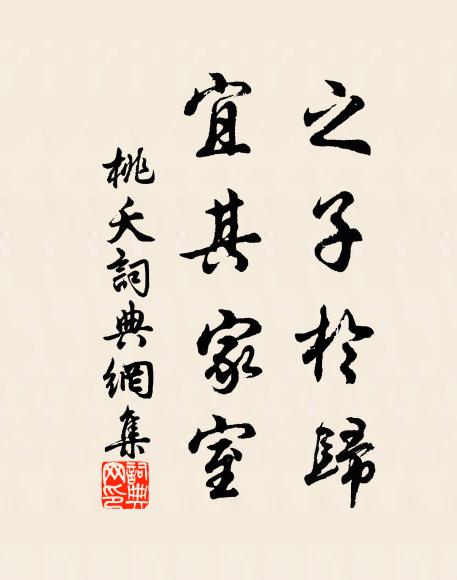 之子於歸
宜其家室
桃夭詞典網集
詞典網印